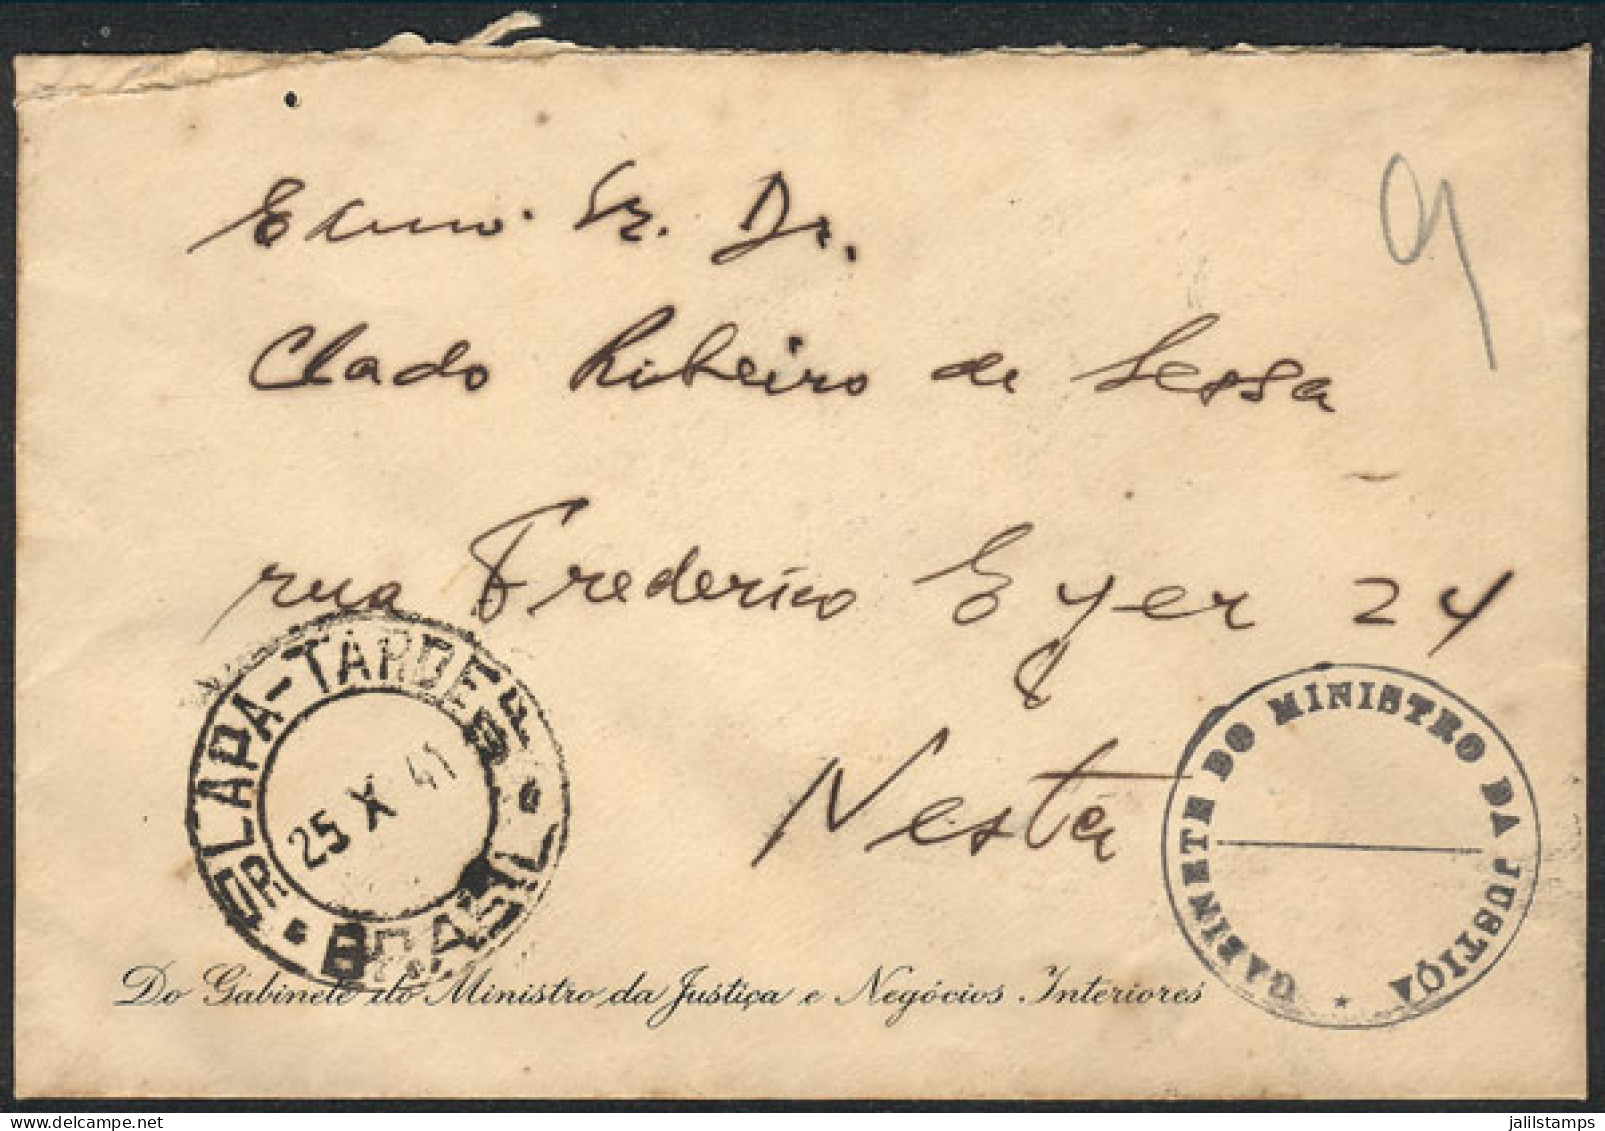 Exmo. Sr. Dr.
9
Clado Ribeiro de Lessa
rua Frederico Eyer 24
Nesta
LAPA-TARDE
25 X 41
BRASIL
GABINETE DO MINISTRO DA JUSTIÇA
Do Gabinete do Ministro da Justiça e Negócios Interiores
jalilstamps
delcampe.net